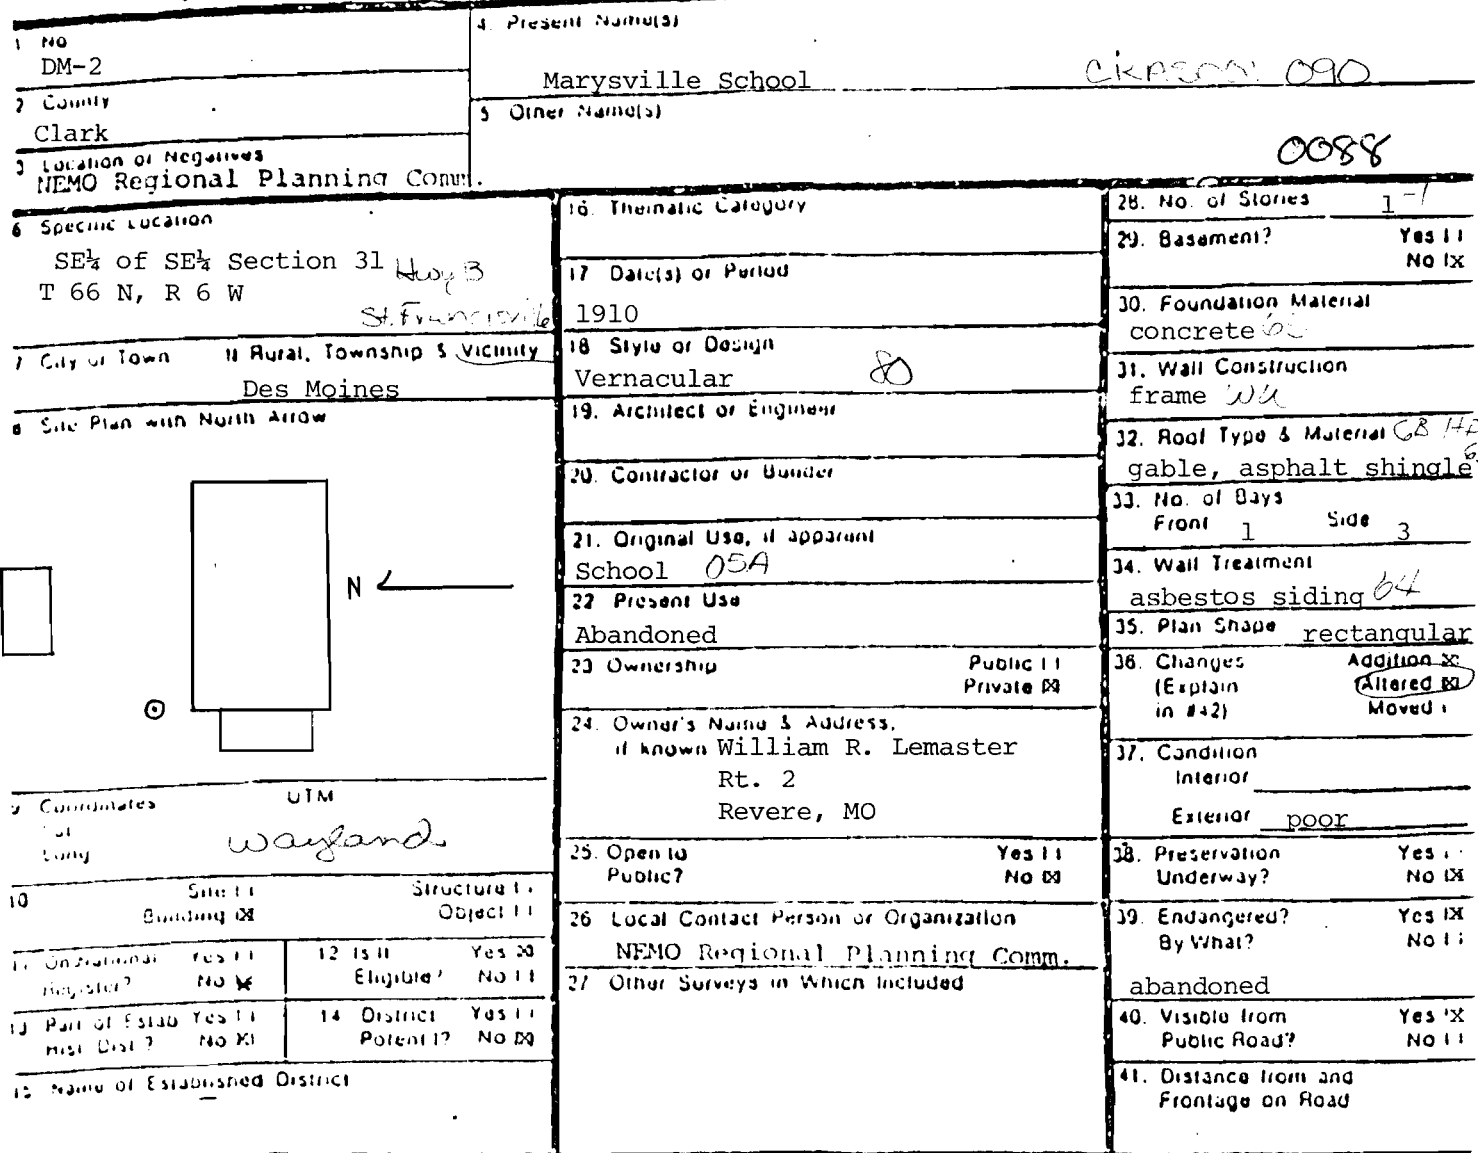 1 No
DM-2
2 County
Clark
3 Location of Negatives
NEMO Regional Planning Comm.
4. Present Name(s)
Marysville School
090
5 Other Name(s)
0088
6 Specific Location
SE¼ of SE¼ Section 31 Hwy B
T 66 N, R 6 W
St. Francisville
7 City or Town If Rural, Township & Vicinity
Des Moines
8 Site Plan with North Arrow
N
9 Coordinates UTM
Lat
Long
Wayland
10 Site Structure
Building [X] Object
11 On National Register? Yes No [X]
12 Is it Eligible? Yes [X] No
13 Part of Estab Hist Dist? Yes No [X]
14 District Potent'l? Yes No [X]
15 Name of Established District
16. Thematic Category
17 Date(s) or Period
1910
18 Style or Design
Vernacular 80
19. Architect or Engineer
20. Contractor or Builder
21. Original Use, if apparent
School 05A
22 Present Use
Abandoned
23 Ownership Public
Private [X]
24. Owner's Name & Address,
if known William R. Lemaster
Rt. 2
Revere, MO
25. Open to Yes
Public? No [X]
26 Local Contact Person or Organization
NEMO Regional Planning Comm.
27 Other Surveys in Which Included
28. No. of Stories 1
29. Basement? Yes
No [X]
30. Foundation Material
concrete
31. Wall Construction
frame
32. Roof Type & Material GB
gable, asphalt shingle
33. No. of Bays
Front 1 Side 3
34. Wall Treatment
asbestos siding 64
35. Plan Shape rectangular
36. Changes Addition [X]
(Explain Altered [X]
in #42) Moved
37. Condition
Interior
Exterior poor
38. Preservation Yes
Underway? No [X]
39. Endangered? Yes [X]
By What? No
abandoned
40. Visible from Yes [X]
Public Road? No
41. Distance from and
Frontage on Road